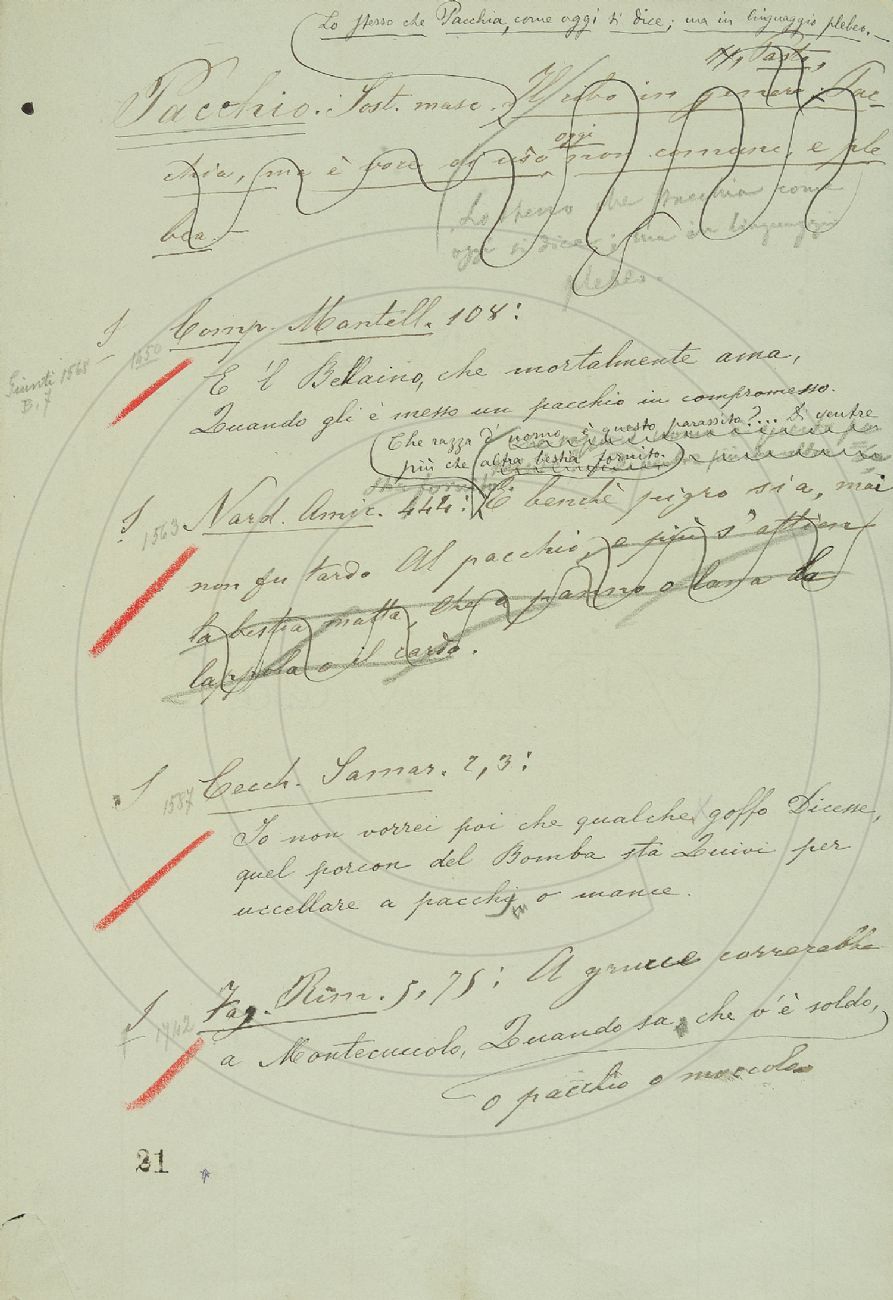 Lo stesso che Pacchia, come oggi si dice; ma in linguaggio plebeo.
Pasto,
Pacchio. Sost. masc. Il cibo in genere. Pac-
oggi
chia, ma è voce di uso non comune, e ple
bea.
Lo stesso che pacchia come
oggi si dice; ma in linguaggio
plebeo.
S Comp. Mantell. 108:
1650
Giunti 1568
B. 7
E 'l Bellaino, che mortalmente ama,
Quando gli è messo un pacchio in compromesso.
Che razza d' uomo è questo parassita?... Di ventre
più che altra bestia fornito.
S 1563 Nard. Amic. 444: E benchè pigro sia, mai
non fu tardo Al pacchio, e più s'attien
la bestia matta, che a panno o lana la
lappola o il cardo.
S 1587 Cecch. Samar. 2, 3:
Io non vorrei poi che qualche goffo Dicesse,
quel porcon del Bomba sta Quivi per
uccellare a pacchi o mance.
S 1742 Fag. Rim. 5, 75: A gruccie correrebbe
a Montecuccolo, Quando sa, che v'è soldo,
o pacchio o moccolo
21